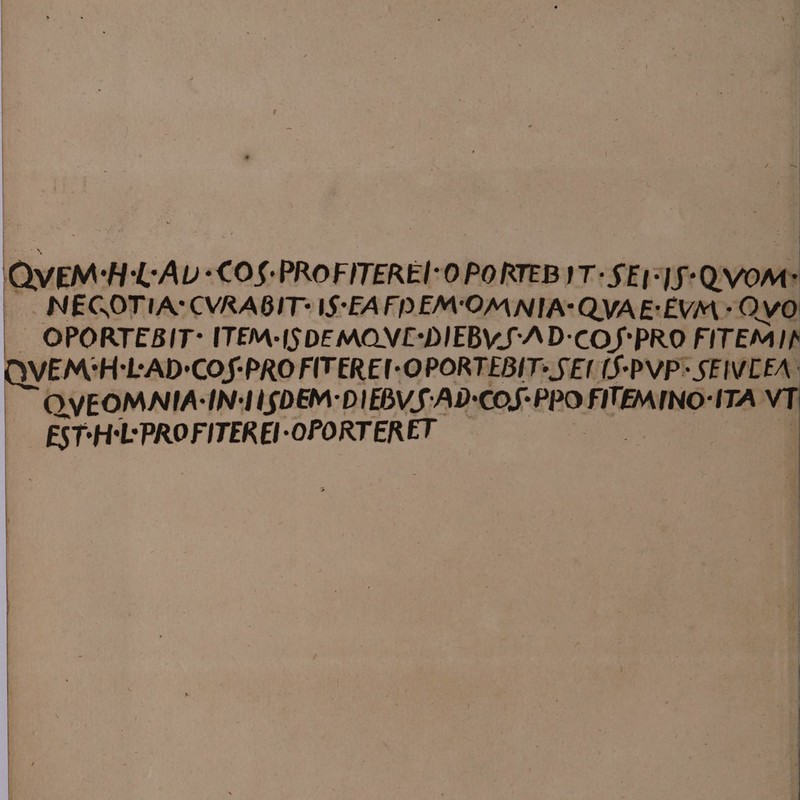 QVEM·H·L·AD·COS·PROFITEREI·OPORTEBIT·SEI·IS·QVOM·
NEGOTIA·CVRABIT·IS·EAFDEM·OMNIA·QVAE·EVM·QVO
OPORTEBIT·ITEM·ISDEMQVE·DIEBVS·AD·COS·PROFITEMIN
QVEM·H·L·AD·COS·PROFITEREI·OPORTEBIT·SEI IS·PVP·SEIVEEA·
QVEOMNIA·IN·IISDEM·DIEBVS·AD·COS·PPOFITEMINO·ITA VT
EST·H·L·PROFITEREI·OPORTERET